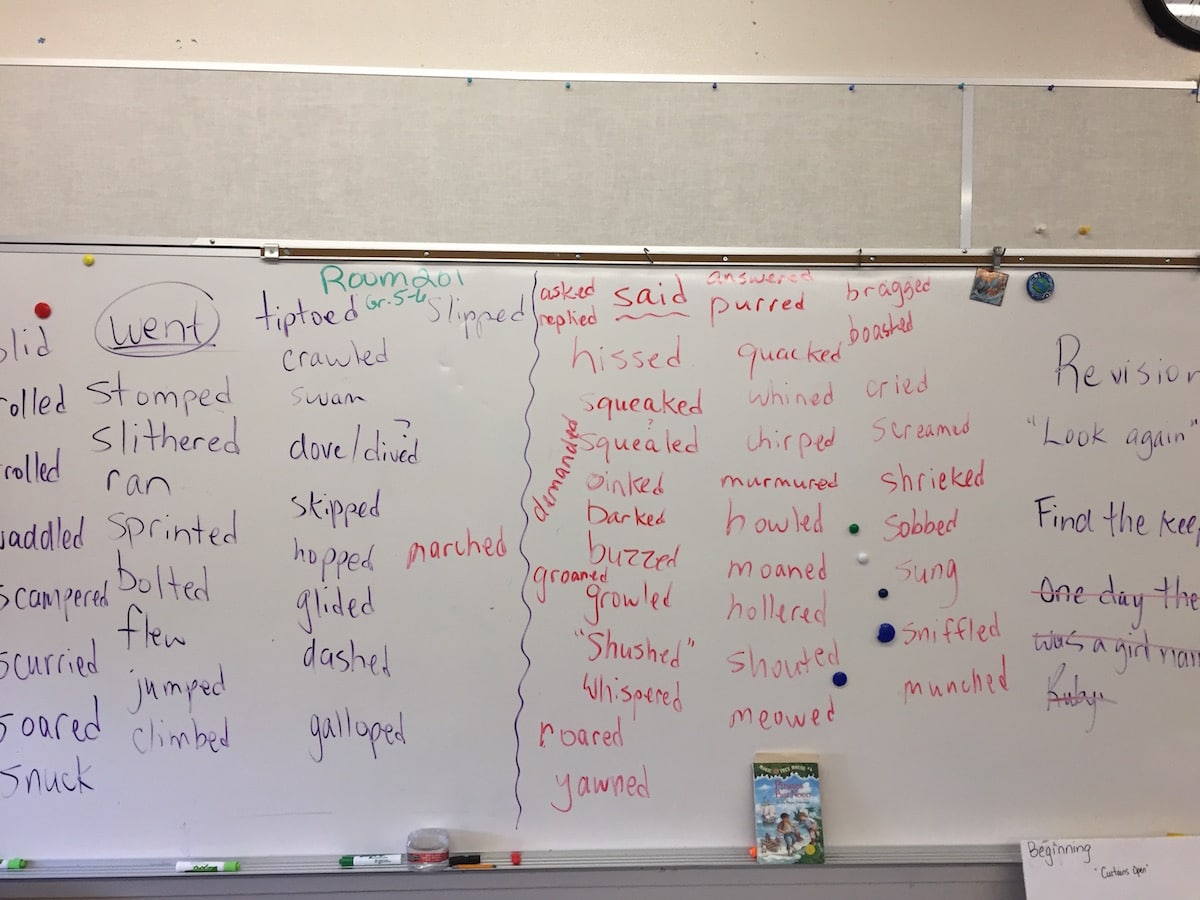 Room 201
Gr. 5-6
went
slid
rolled
rolled
waddled
scampered
scurried
soared
snuck
stomped
slithered
ran
sprinted
bolted
flew
jumped
climbed
tiptoed
crawled
swam
?
dove/dived
skipped
hopped
glided
dashed
galloped
slipped
marched
asked
replied
said
hissed
squeaked
?
squealed
demanded
oinked
barked
buzzed
groaned
growled
"Shushed"
whispered
roared
yawned
answered
purred
quacked
whined
chirped
murmured
howled
moaned
hollered
shouted
meowed
bragged
boasted
cried
screamed
shrieked
sobbed
sung
sniffled
munched
Revision
"Look again"
Find the keep
One day the
was a girl nam
Ruby.
Beginning
"Curtains Open"